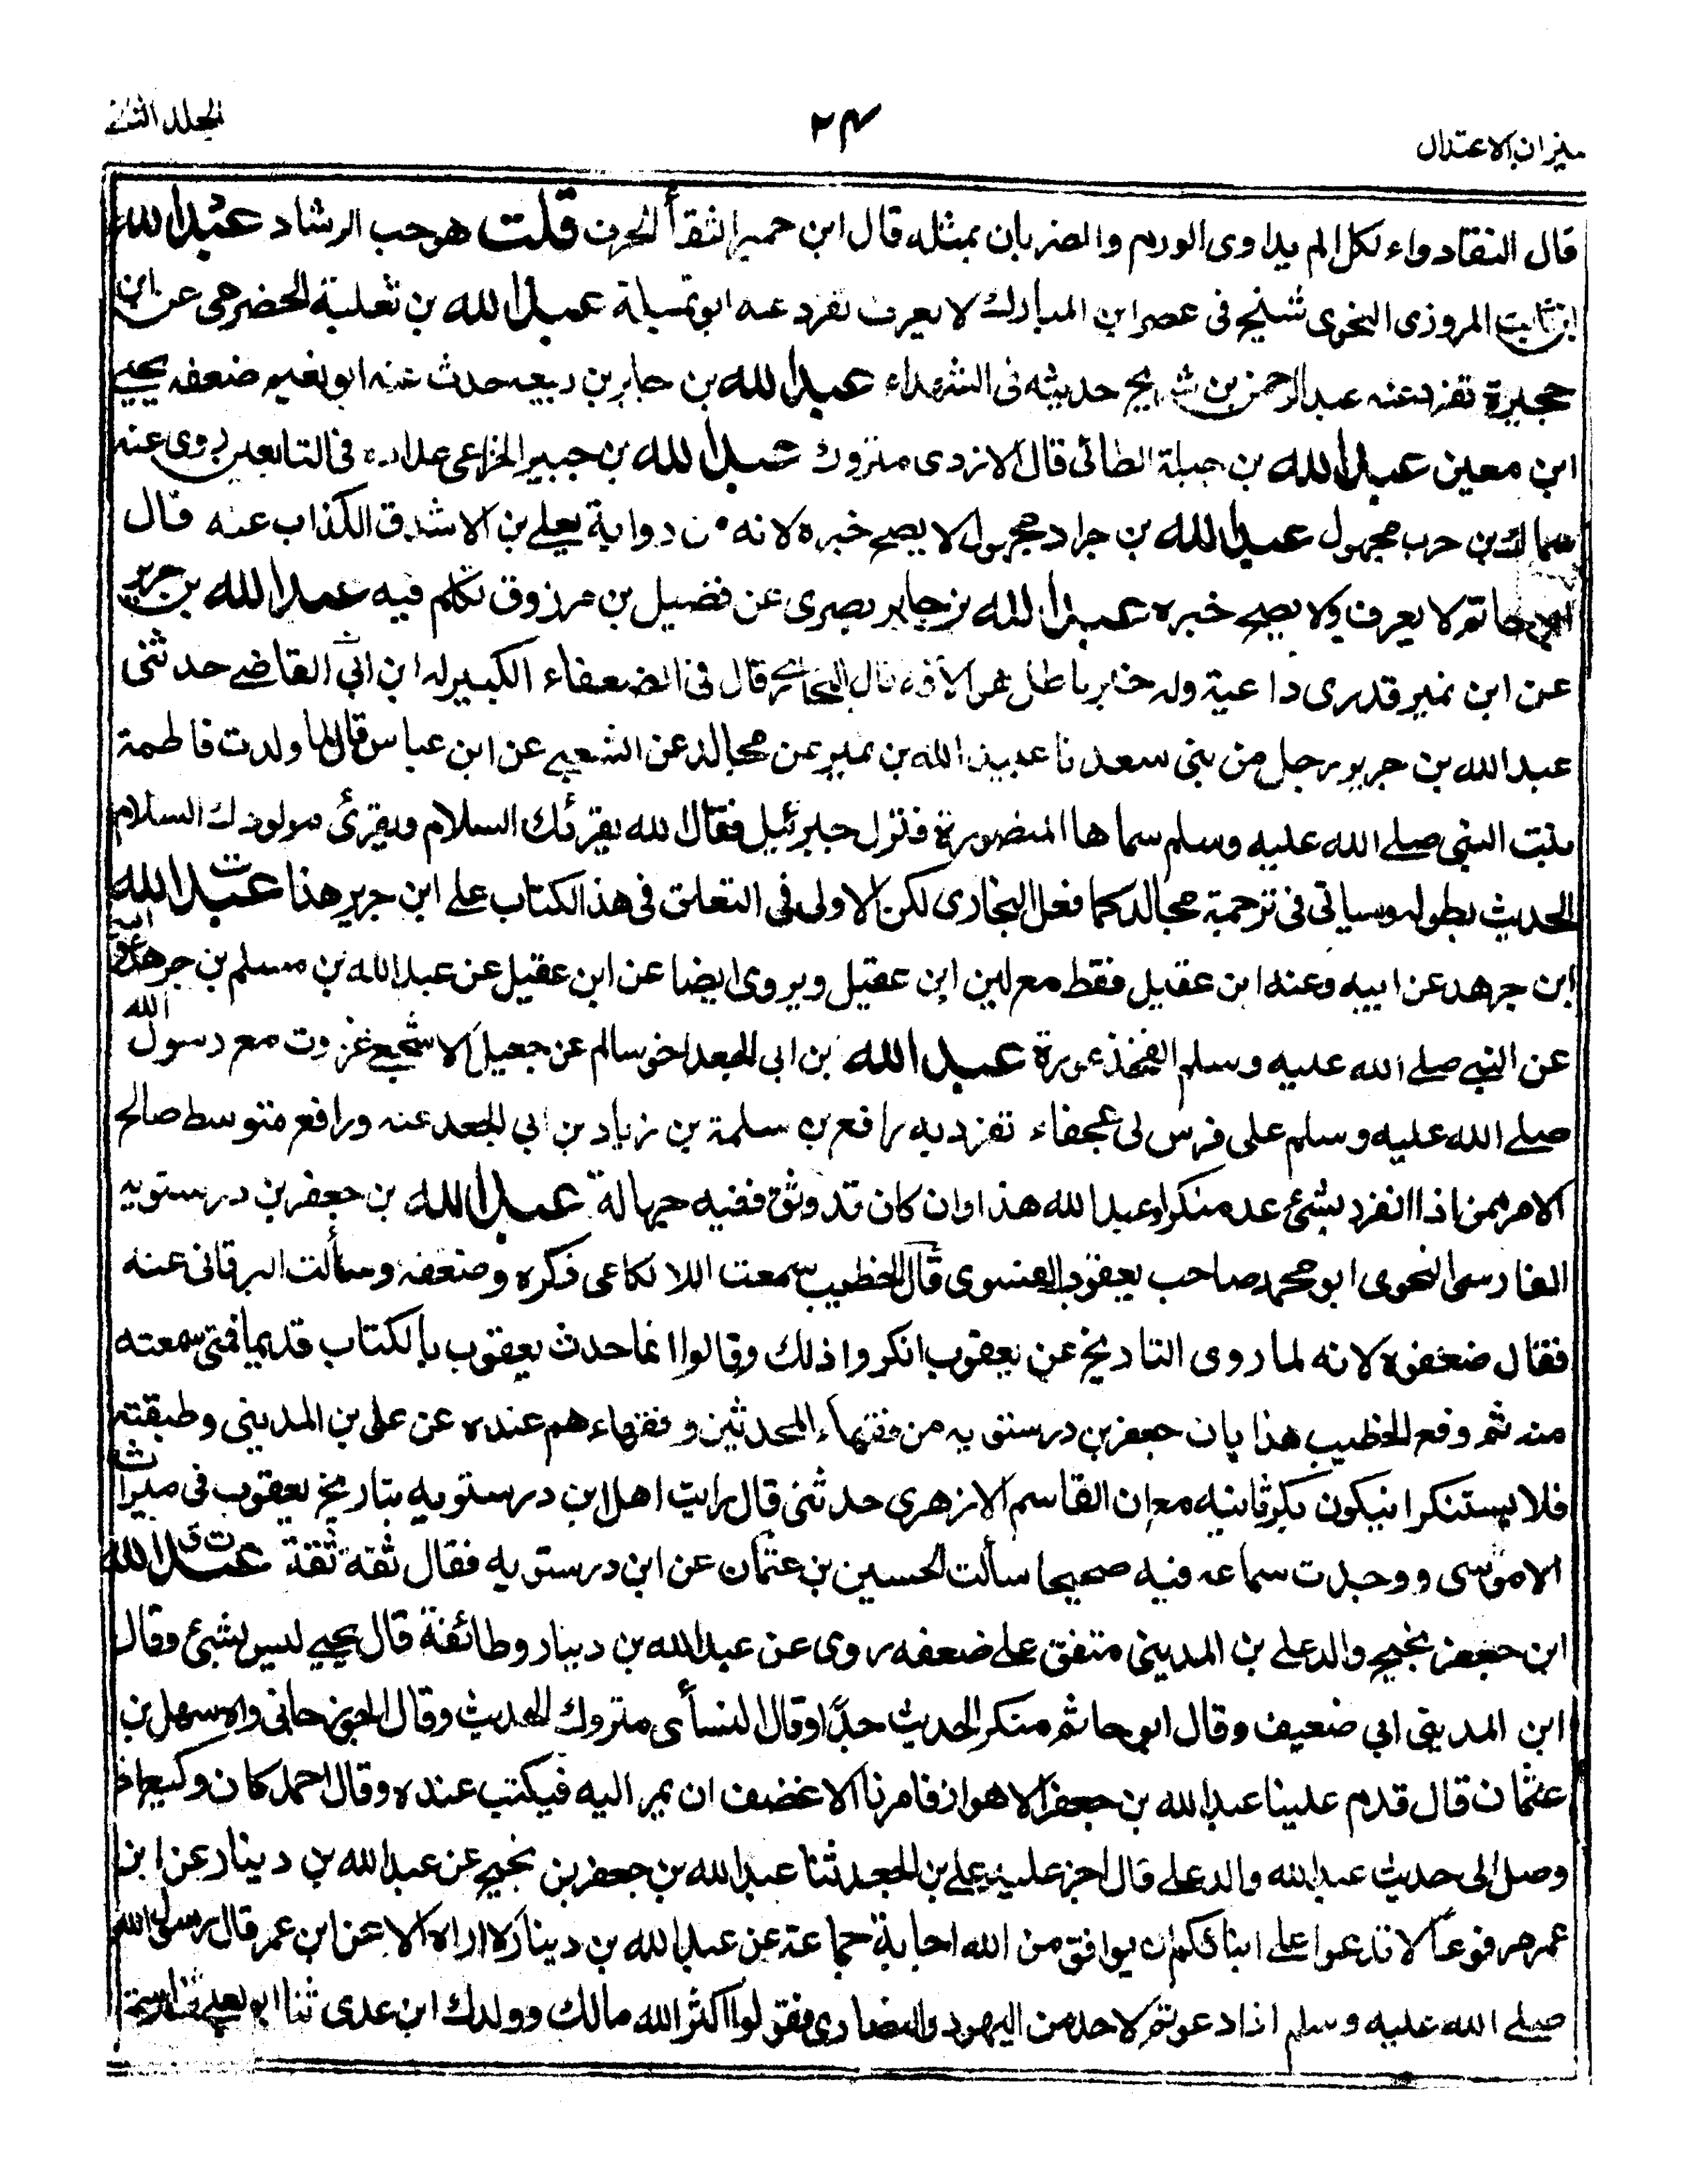 ميزان الاعتدال
٢٤
المجلد الثانى
قال النقاد واء لكل الم يداوى الورم والضربان بمثله قال ابن حمير الثقأ الحرف قلت هو حب الرشاد عبد الله
ابن ثابت المروزى النحوى شيخ فى عصر ابن المبارك لا يعرف تفرد عنه ابو تميلة عبد الله بن ثعلبة الحضرمى عن ابن
حجيرة تفرد عنه عبد الرحمن بن شريح حديثه فى الشهداء عبد الله بن جابر بن ربيعه حدث عنه ابو نعيم ضعفه يحيى
ابن معين عبد الله بن جبلة الطائى قال الازدى متروك عبد الله بن جبير الخزاعى عداده فى التابعين روى عنه
سماك بن حرب مجهول عبد الله بن جراد مجهول لا يصح خبره لانه من رواية يعلى بن الاشدق الكذاب عنه قال
ابو حاتم لا يعرف ولا يصح خبره عبد الله بن جابر بصرى عن فضيل بن مرزوق تكلم فيه عبد الله بن جرير
عن ابن نمير قدرى داعية وله خبر باطل هو الآفه قال البخارى قال فى الضعفاء الكبير له ابن ابى القاضى حدثنى
عبد الله بن جرير رجل من بنى سعد نا عبيد الله بن نمير عن مجالد عن الشعبى عن ابن عباس قال لما ولدت فاطمة
بنت النبى صلى الله عليه وسلم سماها المنصورة فنزل جبرئيل فقال الله يقرئك السلام ويقرئ مولودك السلام
الحديث بطوله وسياتى فى ترجمة مجالد كما فعل البخارى لكن الاولى فى التعلق فى هذ الكتاب على ابن جرير هذا عبد الله ت
ابن جرهد عن ابيه وعنه ابن عقيل فقط مع لين ابن عقيل ويروى ايضا عن ابن عقيل عن عبد الله بن مسلم بن جرهد عن ابيه
عن النبى صلى الله عليه وسلم الفخذ عورة عبد الله بن ابى الجعد اخو سالم عن جعيل الاشجعى غزوت مع رسول الله
صلى الله عليه وسلم على فرس لى عجفاء تفرد به رافع بن سلمة بن زياد بن ابى الجعد عنه ورافع متوسط صالح
الامر ممن اذا انفرد بشئ عد منكرا وعبد الله هذا وان كان قد وثق ففيه جهالة عبد الله بن جعفر بن درستويه
الفارسى النحوى ابو محمد صاحب يعقوب الفسوى قال الخطيب سمعت اللالكاعى ذكره وضعفه وسألت البرقانى عنه
فقال ضعفوه لانه لما روى التاريخ عن يعقوب انكروا ذلك وقالوا انما حدث يعقوب بالكتاب قديما فمتى سمعته
منه ثم وفع الخطيب هذا بان جعفر بن درستويه من فقهاء المحدثين وفقهاءهم عنده عن على بن المدينى وطبقته
فلا يستنكر ان يكون بكر بابنه مع ان القاسم الازهرى حدثنى قال رايت اهل ابن درستويه بتاريخ يعقوب فى ميراث
الاموسى ووجدت سماعه فيه صحيحا سألت الحسين بن عثمان عن ابن درستويه فقال ثقة ثقة عبد الله ت ق
ابن جعفر بن نجيح والد على بن المدينى متفق على ضعفه روى عن عبد الله بن دينار وطائفة قال يحيى ليس بشئ وقال
ابن المدينى ابى ضعيف وقال ابو حاتم منكر الحديث جدًا وقال النسأى متروك الحديث وقال الجوزجانى واه سهل بن
عثمان قال قدم علينا عبد الله بن جعفر الاهواز فامرنا الاغضف ان يمر اليه فيكتب عنده وقال احمد كان وكيع اذا
وصل الى حديث عبد الله والد على قال اجز عليه على بن الجعد ثنا عبد الله بن جعفر بن نجيح عن عبد الله بن دينار عن ابن
عمر مرفوعا لا تدعوا على ابنائكم ان يوافق من الله اجابة جماعة عن عبد الله بن دينار لا اراه الا عن ابن عمر قال رسول الله
صلى الله عليه وسلم اذا دعوتم لاحد من اليهود والنصارى فقولوا اكثر الله مالك وولدك ابن عدى ثنا ابو يعلى